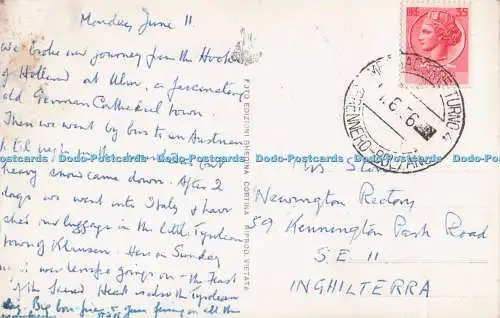 Monday, June 11.
We broke our journey from the Hook
of Holland at Ulm, a fascinating
old German Cathedral town.
Then we went by bus to an Austrian
heavy snow came down. After 2
days we went into Italy & have
our luggage in the little Tyrolean
town of Klausen. Here on Sunday
it was terrific goings on - the Feast
of the Sacred Heart is also the Tyrolean
day. Big bon fires & guns firing on all the
FOTO EDIZIONI GHEDINA CORTINA RIPROD. VIETATA
LIRE 35
TURNO 4
BRENNERO-BOLZANO
Newington Rectory
59 Kennington Park Road
S.E. 11
INGHILTERRA
Dodo-Postcards Dodo-Postcards Dodo-Postcards Dodo-Postcards Dodo-Postcards Dodo-Postcards